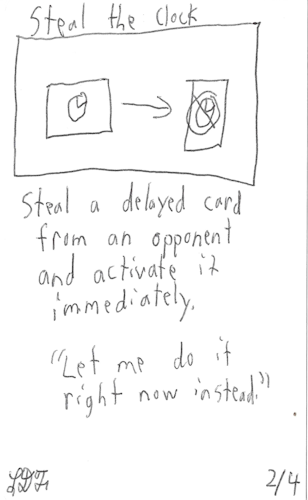 Steal the Clock
Steal a delayed card
from an opponent
and activate it
immediately.
"Let me do it
right now instead."
2/4